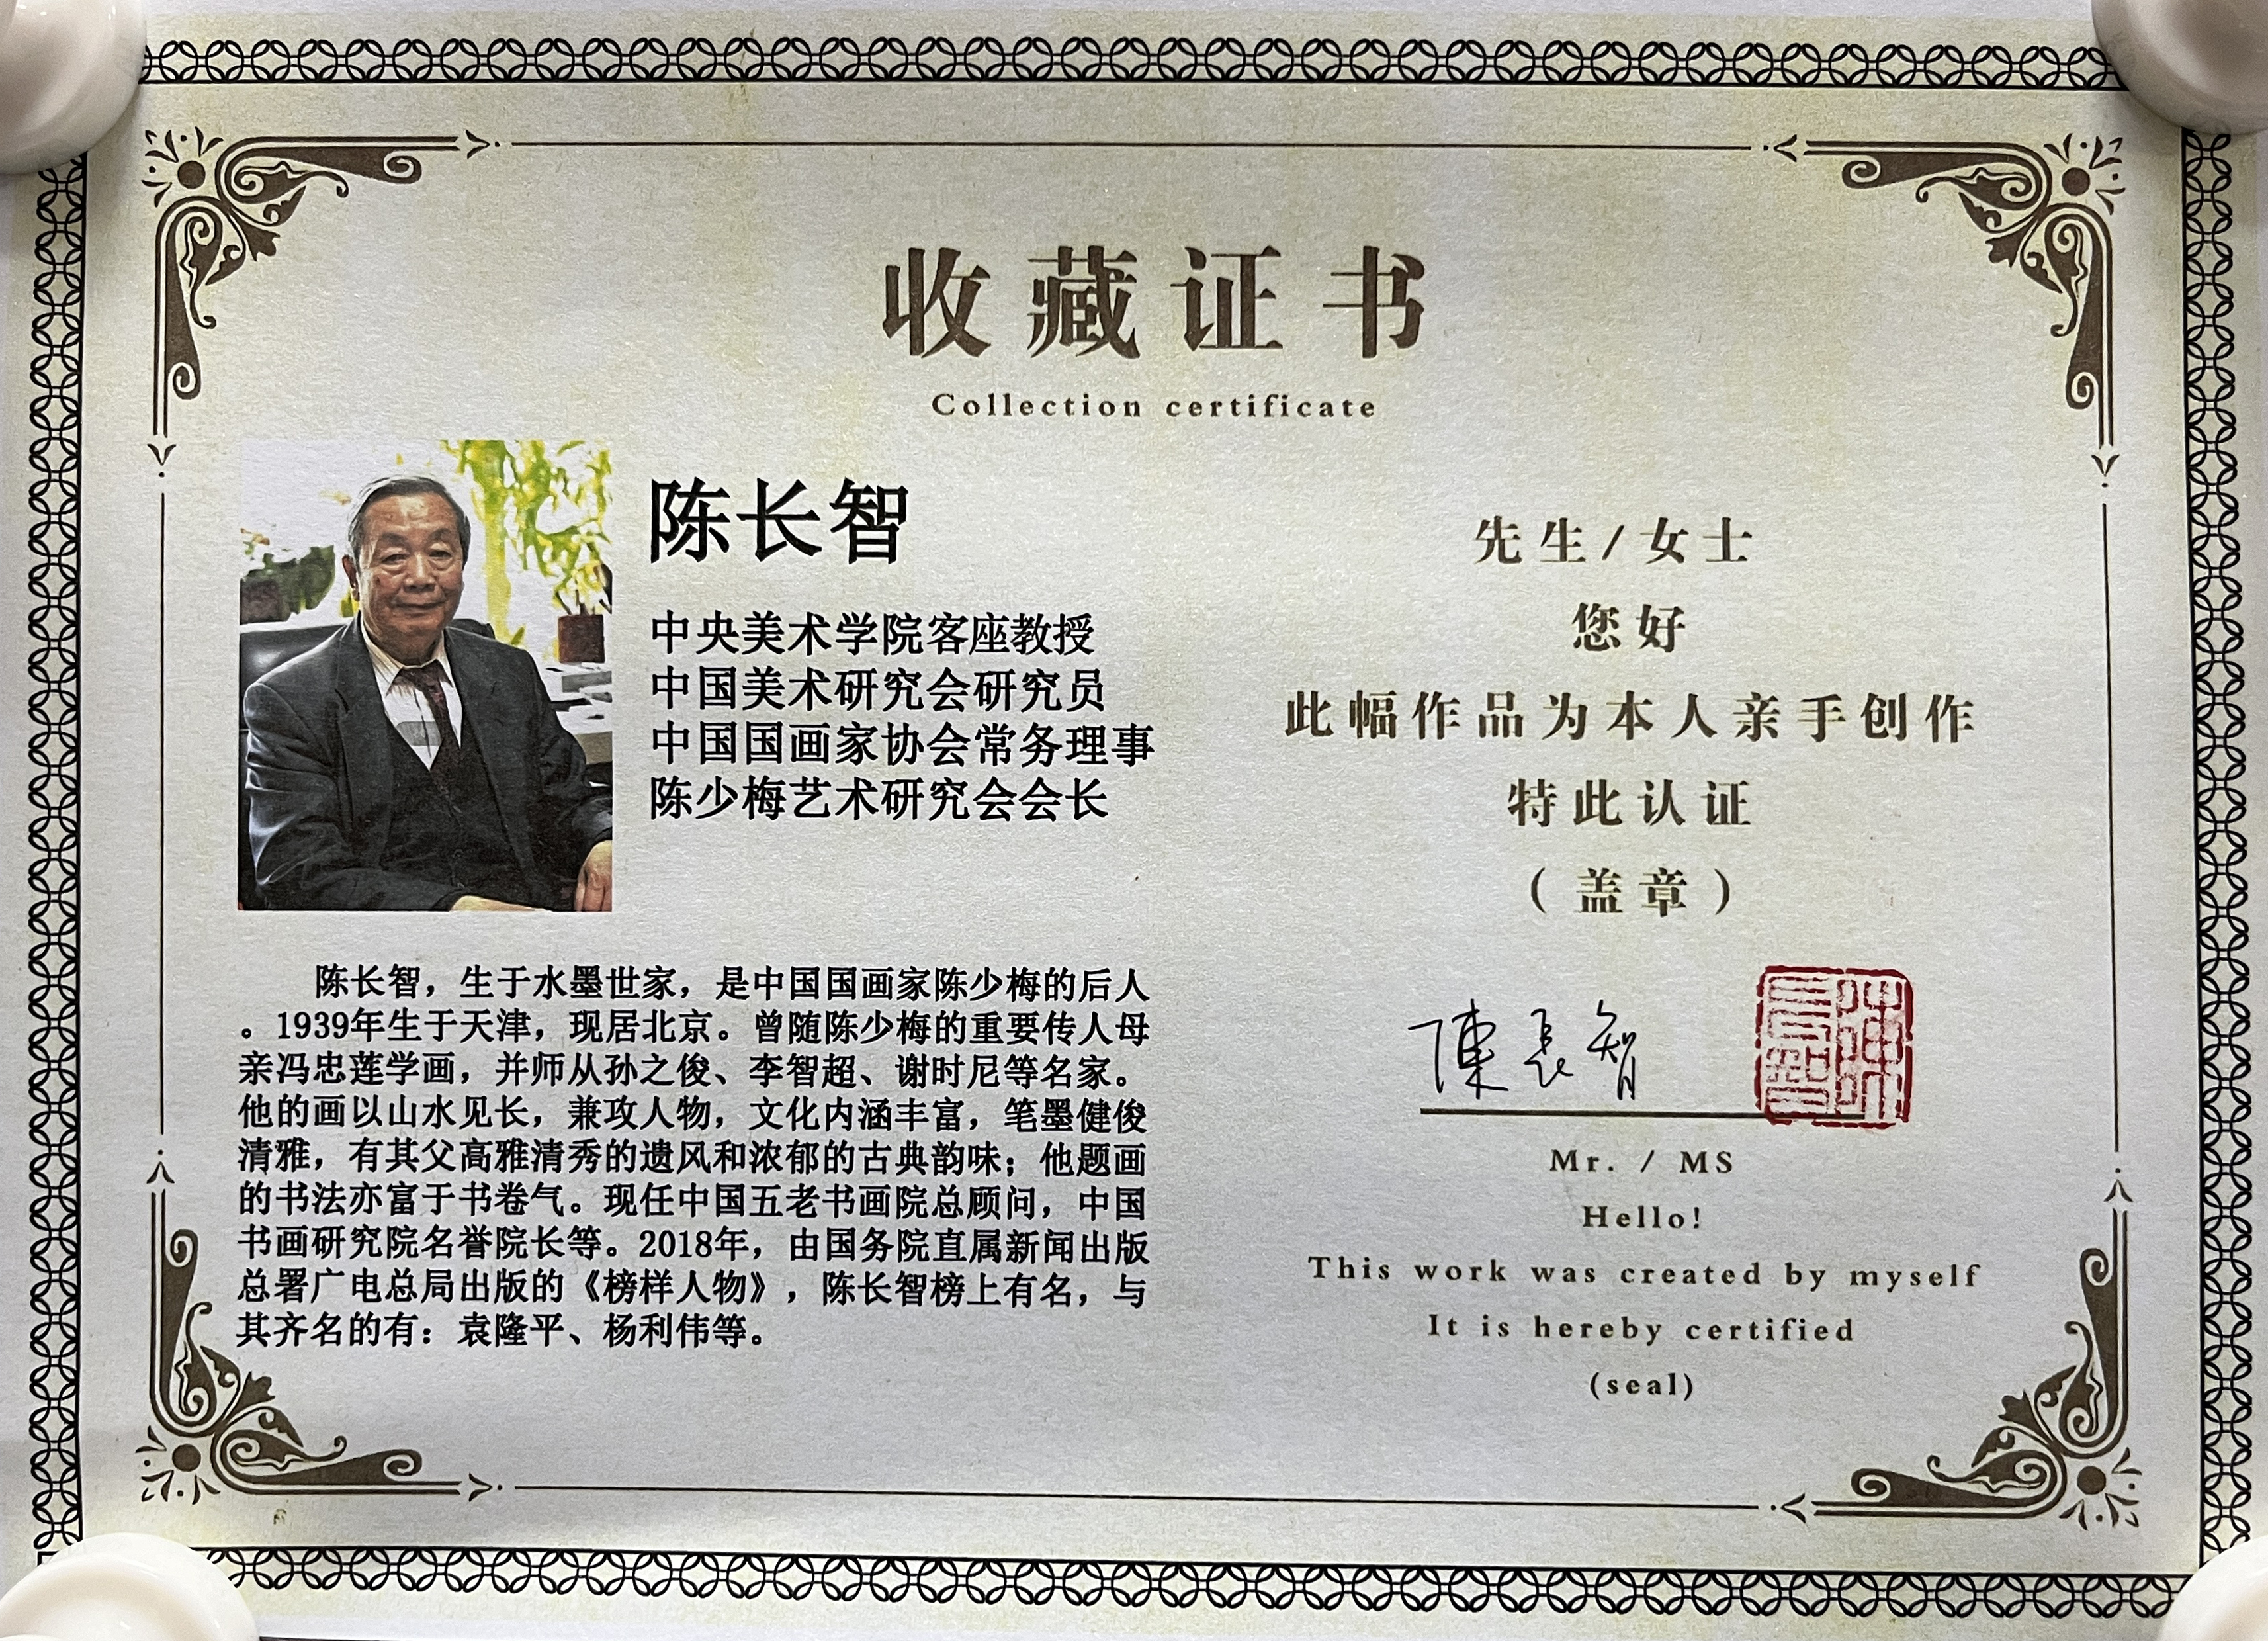 收藏证书
Collection certificate
陈长智
中央美术学院客座教授
中国美术研究会研究员
中国国画家协会常务理事
陈少梅艺术研究会会长
陈长智，生于水墨世家，是中国国画家陈少梅的后人
。1939年生于天津，现居北京。曾随陈少梅的重要传人母
亲冯忠莲学画，并师从孙之俊、李智超、谢时尼等名家。
他的画以山水见长，兼攻人物，文化内涵丰富，笔墨健俊
清雅，有其父高雅清秀的遗风和浓郁的古典韵味；他题画
的书法亦富于书卷气。现任中国五老书画院总顾问，中国
书画研究院名誉院长等。2018年，由国务院直属新闻出版
总署广电总局出版的《榜样人物》，陈长智榜上有名，与
其齐名的有：袁隆平、杨利伟等。
先生/女士
您好
此幅作品为本人亲手创作
特此认证
（盖章）
陳長智
陳長智
Mr. / MS
Hello!
This work was created by myself
It is hereby certified
(seal)